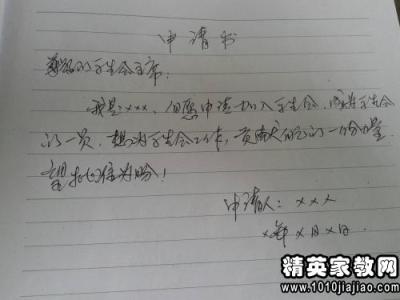 申请书
尊敬的学生会主席：
我是×××，但愿申请加入学生会，成为学生会
的一员，想为学生会工作，贡献自己的一份力量，
望批准为盼！
申请人：×××
×年×月×日
精英家教网
www.1010jiajiao.com